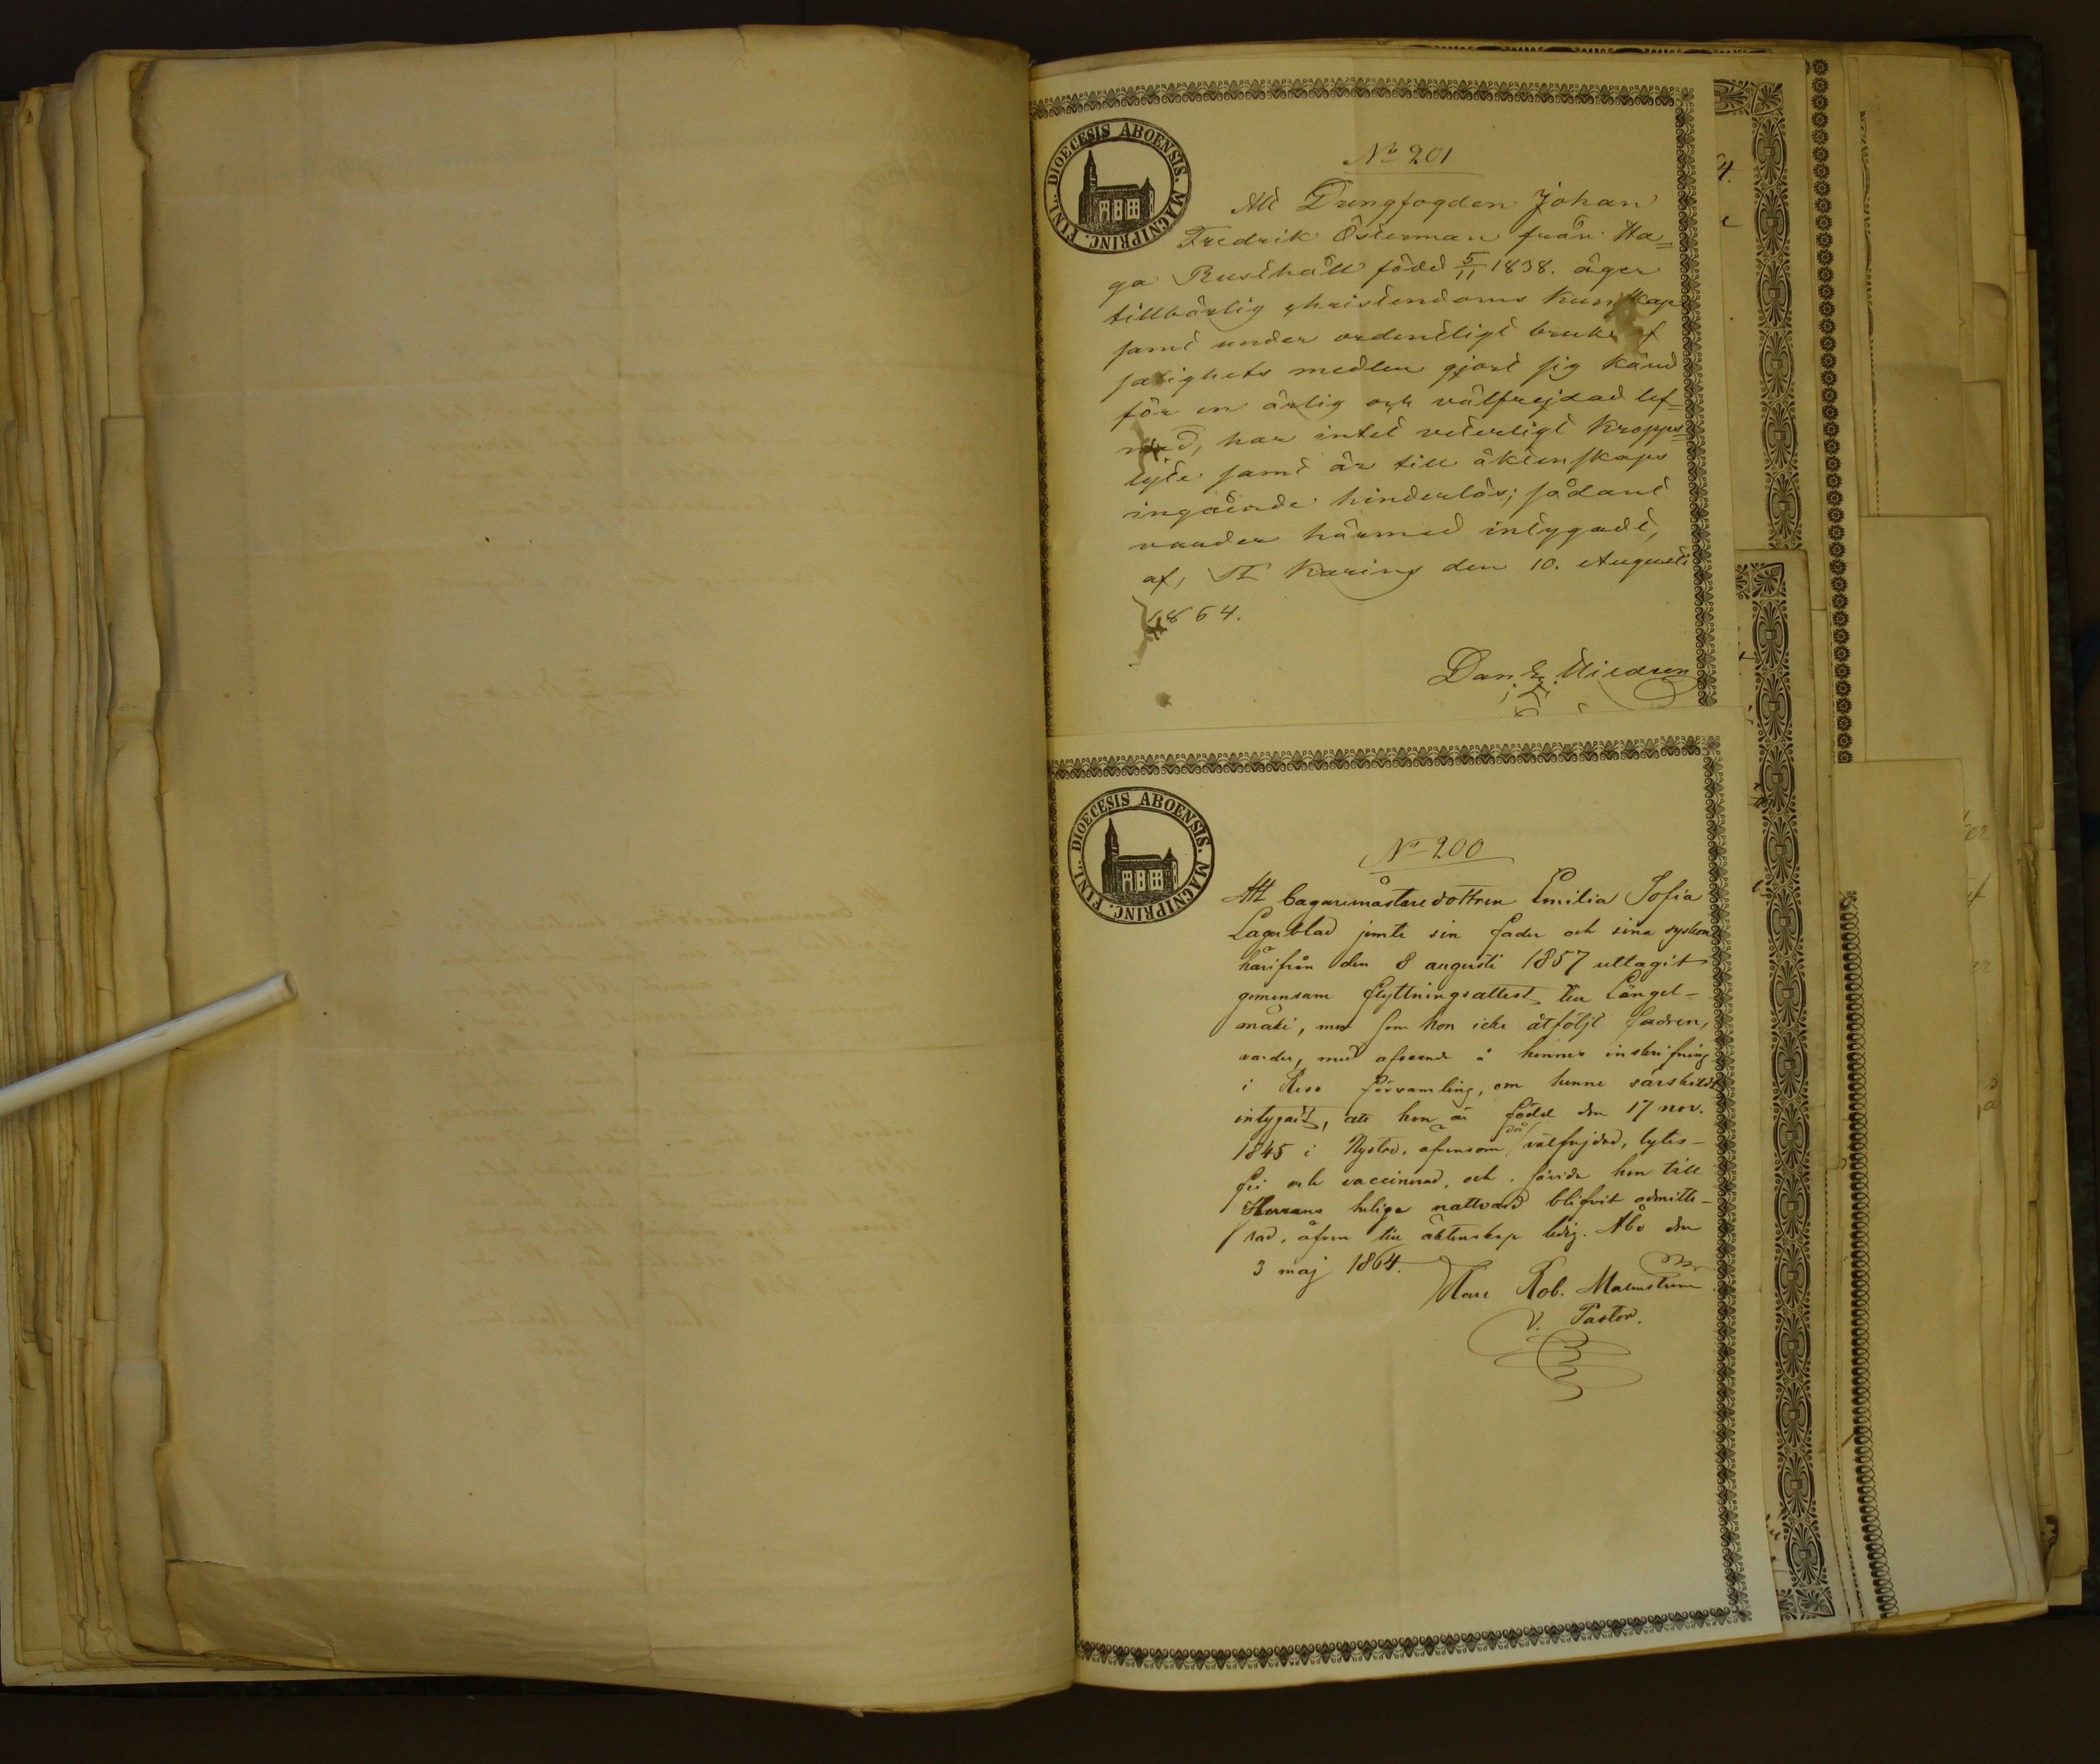 DIOECESIS ABOENSIS. MAGNIPRINC. FINL.
No 201
Att Drengfogden Johan
Fredrik Österman från Ha=
ga Rusthåll född 5/11 1838. äger
tillbörlig christendoms kunskap
samt under ordentligt bruk af
salighets medlen gjort sig känd
för en ärlig och välfrejdad lef=
nad, har intet veterligt kropps=
lyte samt är till äktenskaps
ingående hinderlös; sådant
varder härmed intygadt,
af, St Karins den 10. Augusti
1864.
Dan. 
DIOECESIS ABOENSIS. MAGNIPRINC. FINL.
No 200
Att bagaremästaredottren Emilia Sofia
Lagerblad jemte sin fader och sina syskon
härifrån den 8 augusti 1857 uttagit
gemensam flyttningsattest till Längel-
mäki, men som hon icke åtföljt fadren,
varder, med afseende å hennes inskrifning
i Reso församling, om henne särskildt
intygadt, att hon är född den 17 nov.
1845 i Nystad, äfvensom då välfrejdad, lytes-
fri och vaccinerad, och, sövida hon till
Herrans heliga nattvard blifvit admitte-
rad, äfven till äktenskap ledig. Åbo den
3 maj 1864.
Karl Rob. Malmström
V. Pastor.